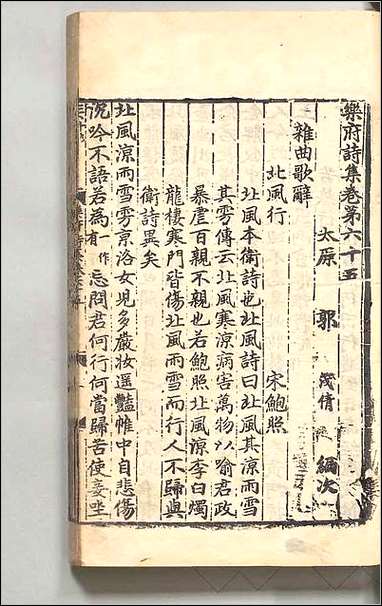 樂府詩集卷第六十五
太原 郭 茂倩 編次
雜曲歌辭
北風行 宋鮑照
北風本衛詩也北風詩曰北風其涼雨雪
其雱傳云北風寒涼病害萬物以喻君政
暴虐百親不親也若鮑照北風涼李白燭
龍棲寒門皆傷北風雨雪而行人不歸與
衛詩異矣
北風涼雨雪雱京洛女兒多嚴妝遥豔帷中自悲傷
沉吟不語若為有一作忘問君何行何當歸苦使妾坐